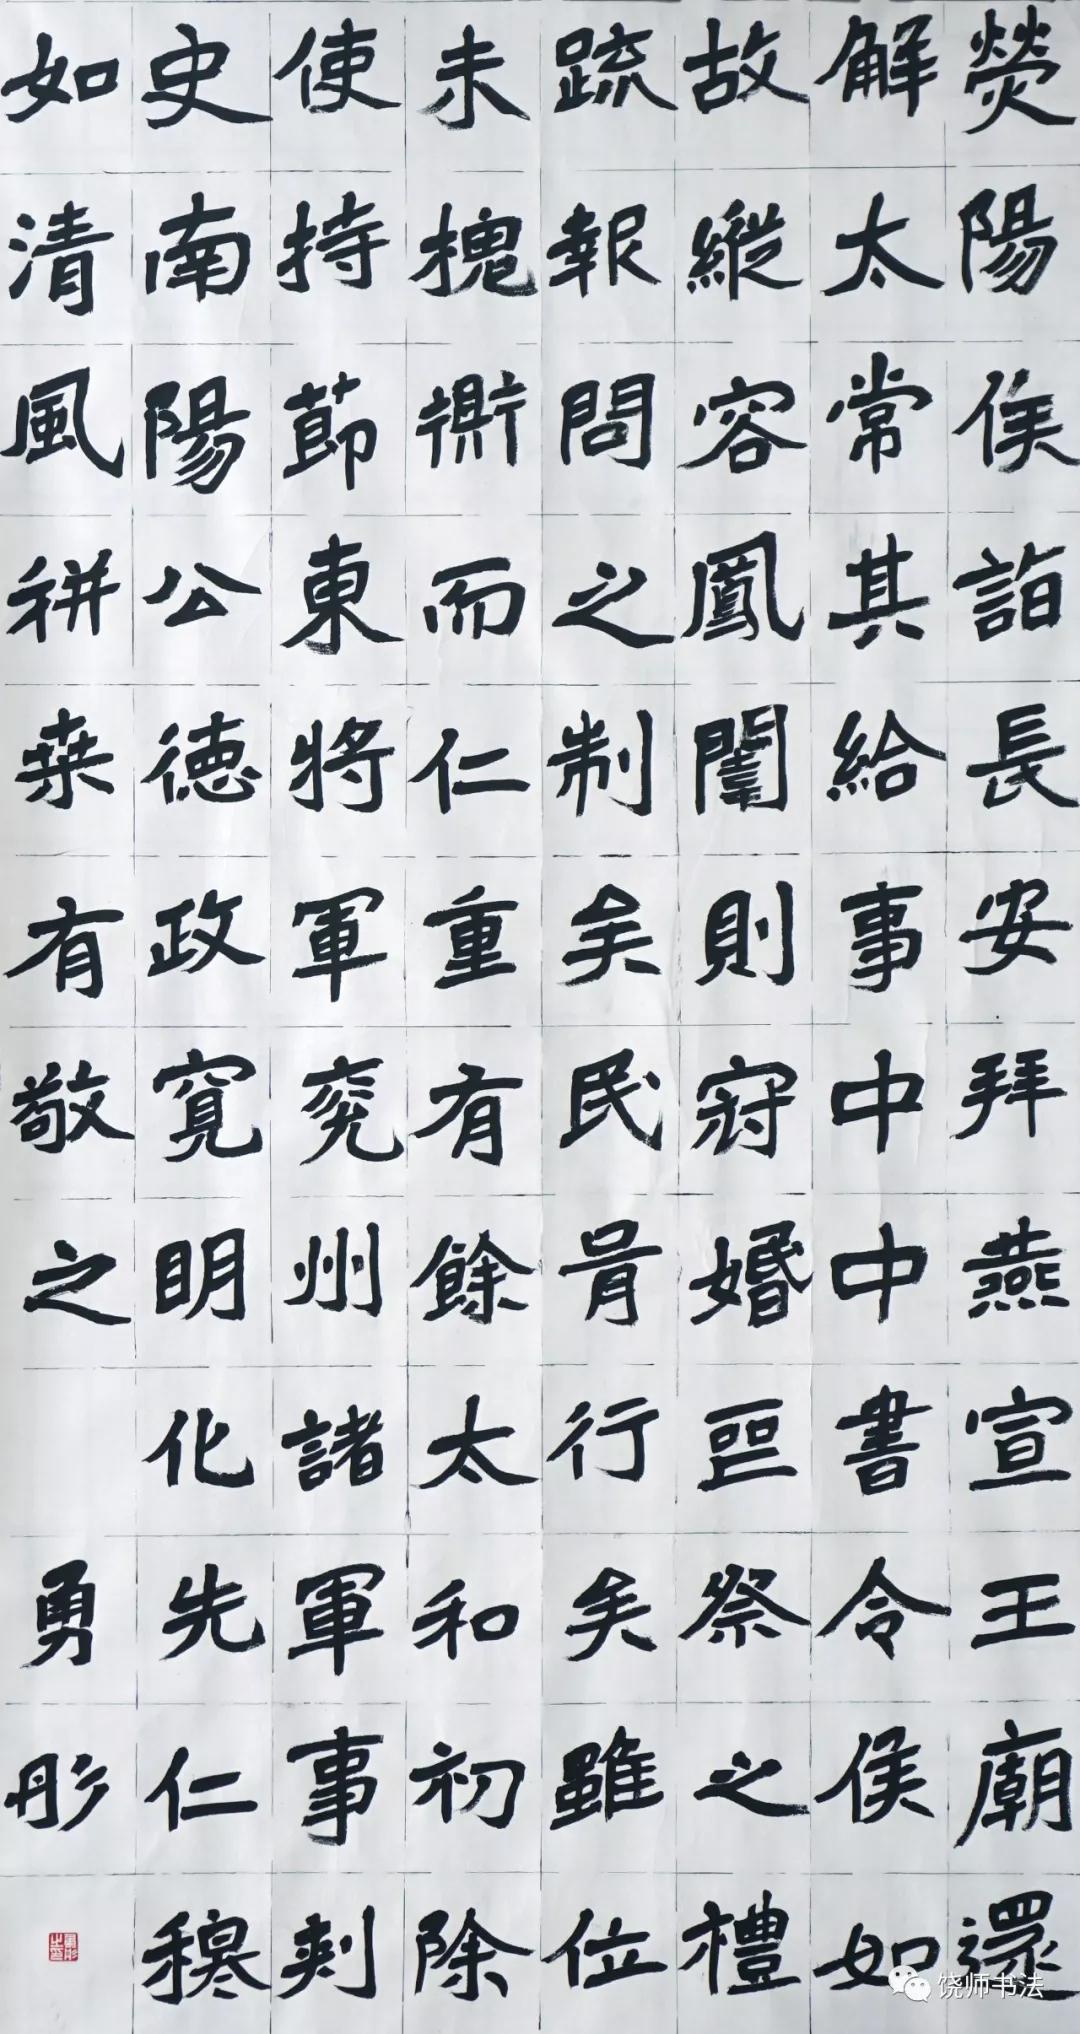 熒陽侯詣長安拜燕宣王廟還
解太常其給事中中書令侯如
故縱容鳳闈則冠婚䘮祭之禮
疏報問之制矣民胥行矣雖位
未槐衡而仁重有餘太和初除
使持節東將軍兖州諸軍事刺
史南陽公德政寬明化先仁穆
如清風耕桒有敬之
勇彤
饶师书法